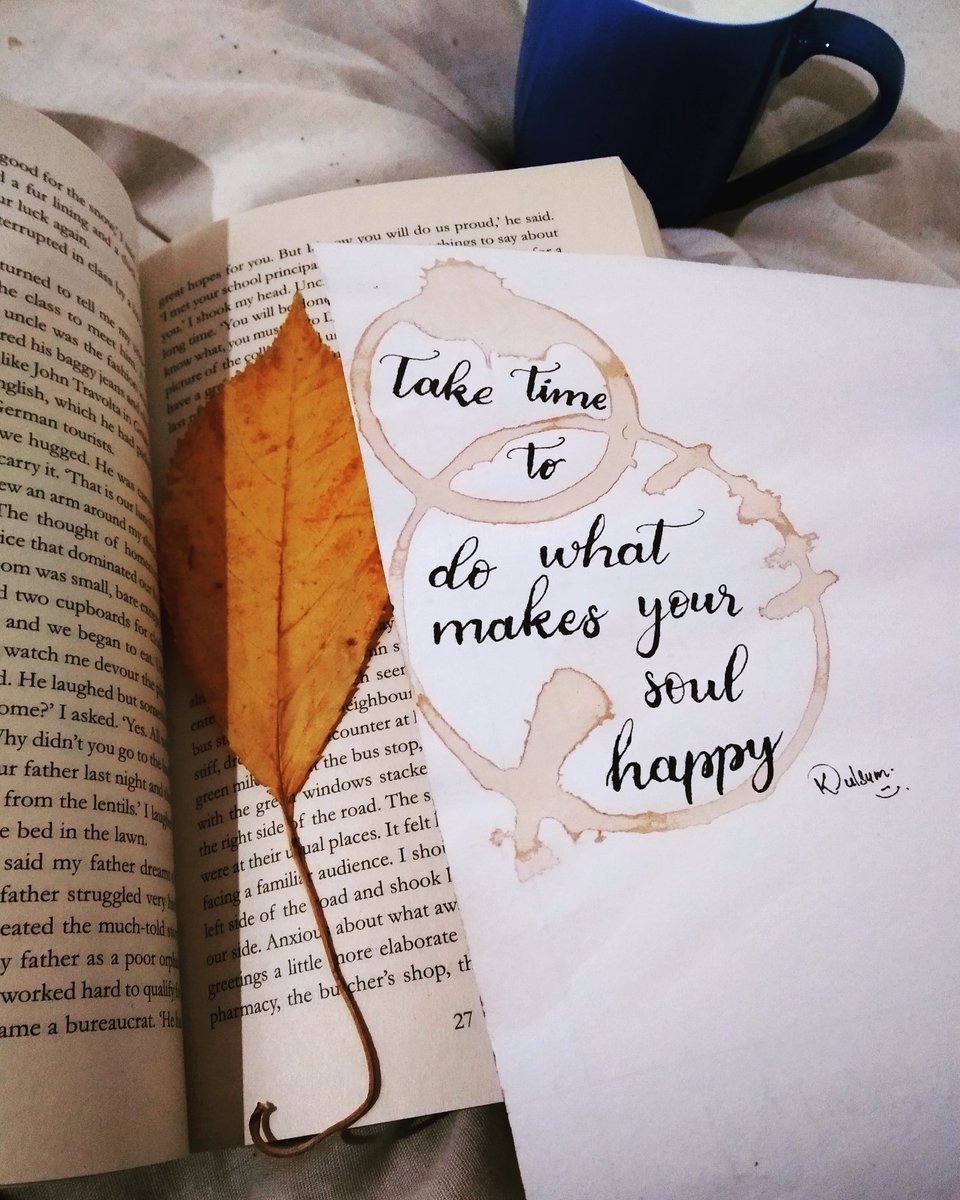 good for the snow,' I
d a fur lining and a
ur luck again.
terrupted in class by a
turned to tell me my
he class to meet him
uncle was the fashion
red his baggy jeans and
like John Travolta in G
nglish, which he had
German tourists.
we hugged. He was
carry it. 'That is our
ew an arm around my
The thought of home
ice that dominated our
oom was small, bare
d two cupboards for
and we began to eat.
watch me devour the
d. He laughed but some
ome?' I asked. 'Yes. All
Why didn't you go to the
ur father last night and
from the lentils.' I laugh
e bed in the lawn.
said my father dream
father struggled very
eated the much-told
y father as a poor orph
worked hard to qualify
ame a bureaucrat. 'He
great hopes for you. But I know you will do us proud,' he said.
'I met your school principal things to say about
you.' I shook my head. Unc for a
long time. 'You will be
know what, you must to
picture of the
have a
last
n s
seen
neighbou
bus counter at
stiff, the bus stop,
green windows stacke
with the of the road. The s
the right side places. It felt
were at their usual audience. I shou
facing a familiar road and shook
left side of the about what aw
our side. Anxious more elaborate
greetings a little shop, th
pharmacy, the butcher's
27
Take time
to
do what
makes your
soul
happy
Kulsum.